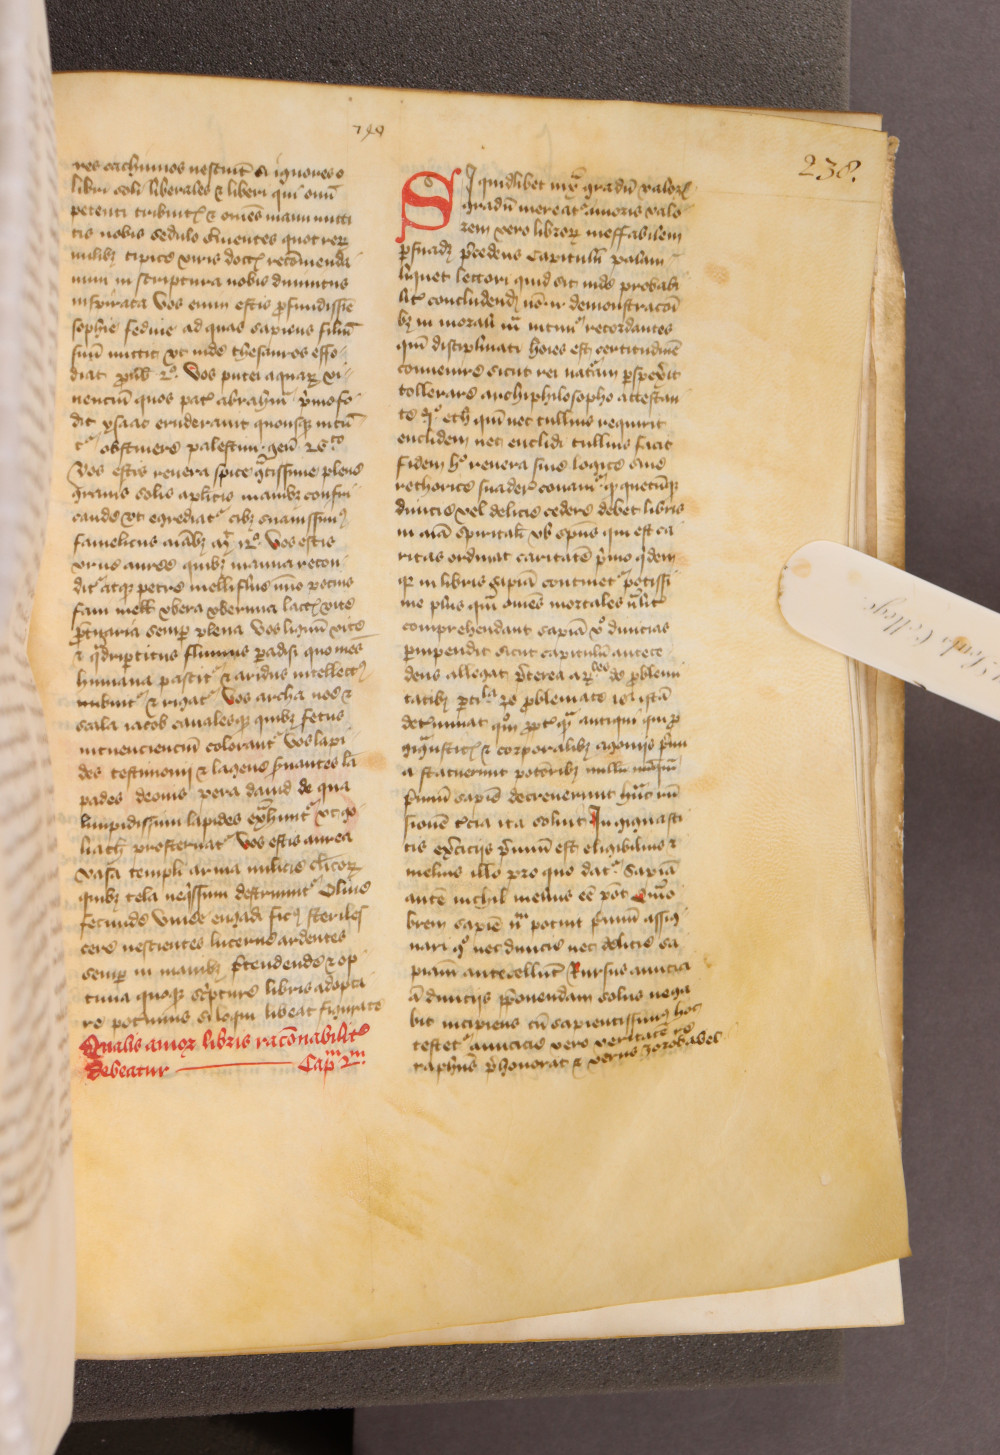 238.
res cachinnos nescit si ignores o
libri soli liberales et liberi qui omni
petenti tribuitis et omnes manumitti
tis nobis sedulo servientes quot rerum
milibus tipice viris doctis recommenda
mini in scriptura nobis divinitus
inspirata Vos enim estis profundissime
sophie fodine ad quas sapiens filium
suum mittit ut inde thesauros effo
diat prouerb 2o. Vos putei aquarum vi
uencium quos pater abraham primo fo
dit ysaac eruderauit quosque nitun
tur obstruere palestini gen 26to
Vos estis reuera spice gratissime plene
granis solis aplicis manibus confri
cande ut egrediatur cibus suauissimus
famelicis animabus mt 12o. Vos estis
vrne auree quibus manna recon
ditur atque petre melliflue immo pocius
faui mellis vbera vberrima lactis vite
promtuaria semper plena Vos lignum vite
et quadripertitus fluuius paradisi quo mens
humana pascitur et aridus intellectus
imbuitur et rigatur Vos archa noe et
scala iacob canalesque quibus fetus
intuencium colorantur Vos lapi
des testimonii et lagene seruantes la
pades deonis pera dauid de qua
limpidissimi lapides extrahuntur ut go
liath prosternatur Vos estis aurea
vasa templi arma milicie clericorum
quibus tela nequissimi destruuntur Oliue
fecunde vinee engadi ficus steriles
cere nescientes lucerne ardentes
semper in manibus pretendende et op
tima queque scripture libris adopta
re poterimus si loqui libeat figurate
Qualis amor libris racionabiliter
debeatur Capm 2m.
SI quidlibet iuxta gradum valoris
gradum mereatur amoris valo
rem vero librorum ineffabilem
persuadet precedens capitulum palam
liquet lectori quid sit inde probabi
liter concludendum non enim demonstracioni
bus in morali materia nitimur recordantes
quoniam disciplinati hominis est certitudinem
conuenire sicut rei naturam perspexerit
tollerare archiphilosopho attestan
te po eth quoniam nec tullius requirit
euclidem nec euclidi tullius facit
fidem hoc reuera siue logice siue
rethorice suadere conamur quod quecumque
diuicie vel delicie cedere debent libris
in anima spirituali vbi spiritus qui est ca
ritas ordinat caritatem primo quidem
quia in libris sapiencia continetur potissi
me plus quam omnes mortales naturaliter
comprehendant sapiencia vero diuicias
paruipendit sicut capitulum antece
dens allegat Preterea ar les de problema
tibus particula 3o problemate 10 istam
determinat questionem propter quid antiqui qui pro
gignasticis et corporalibus agoniis premi
a statuerunt pocioribus nullum unquam
premium sapiencie decreuerunt hanc ques
sionem tercia ita soluit In gignasti
cis exerciciis premium est eligibilius et
melius illo pro quo datur Sapiencia
autem nichil melius esse potest Quamo
brem sapiencie nullum potuit premium assig
nari ergo nec diuicie nec delicie sa
pienciam antecellunt Rursus amicicia
diuiciis preponendam solus nega
bit incipiens cum sapientissimus hoc
testetur amicicie vero veritatem ie
raphus prehonorat et verus zorobabel